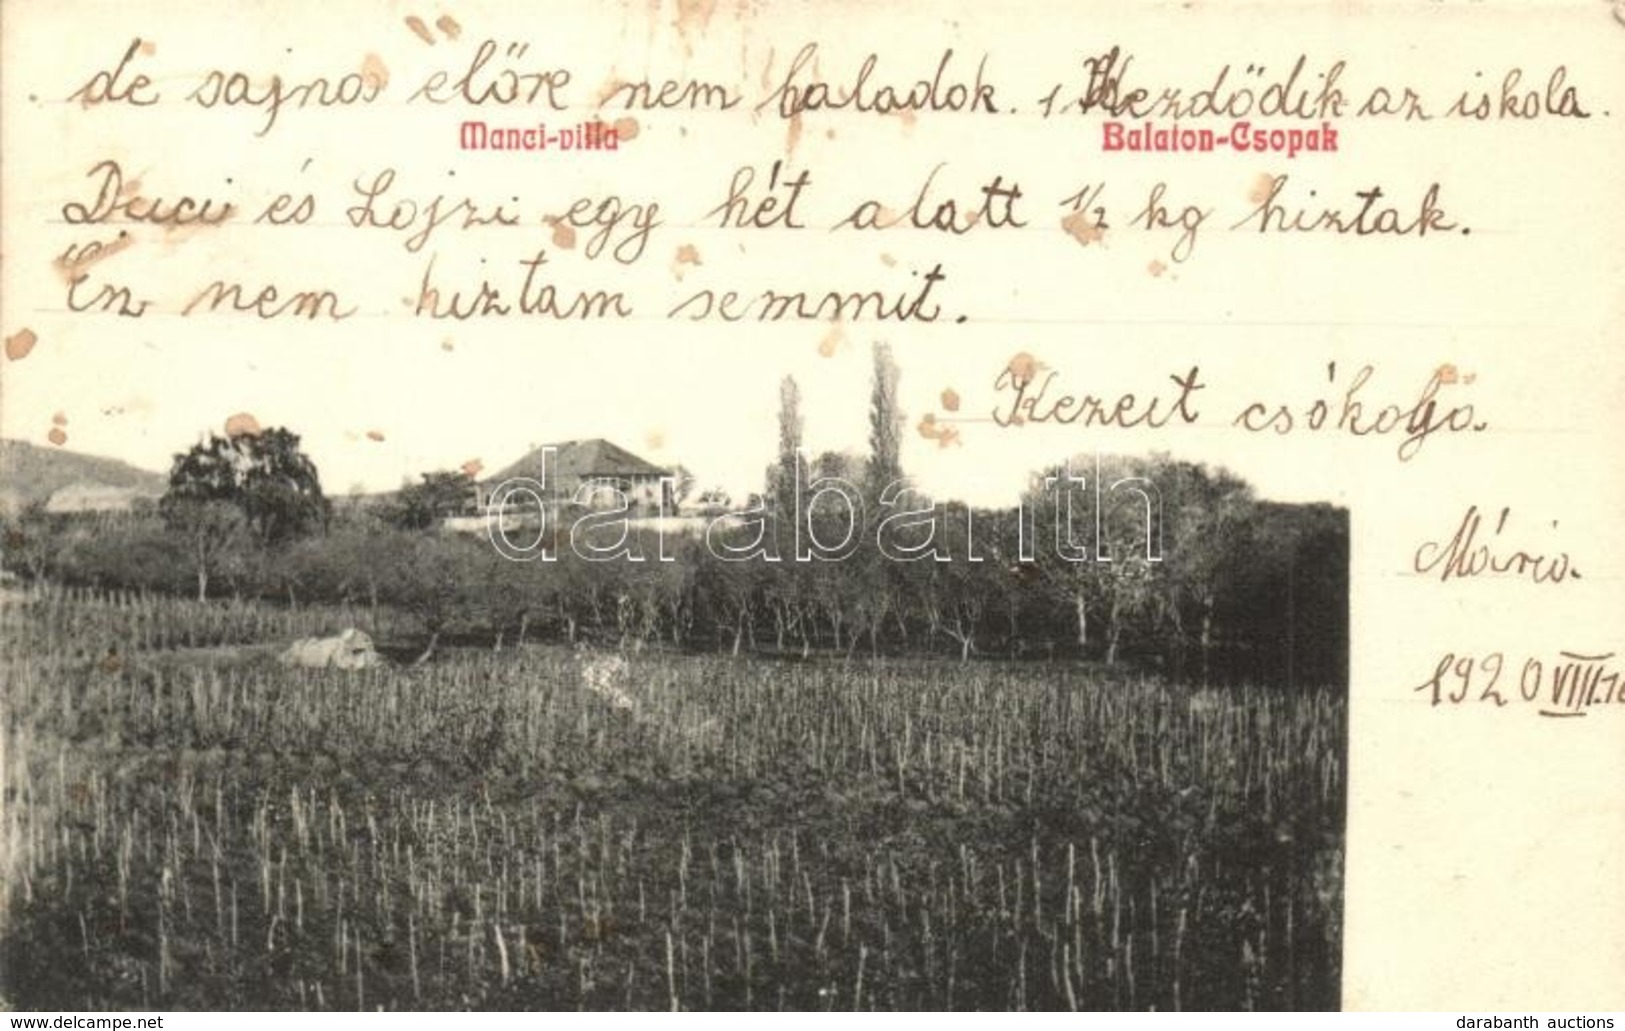 de sajnos előre nem haladok. 1 Kezdődik az iskola.
Manci-villa Balaton-Csopak
Duci és Lojzi egy hét alatt 1/2 kg hiztak.
Én nem hiztam semmit.
Kezeit csókolja
Mária.
1920 VIII.
darabanth
www.delcampe.net
darabanth auctions